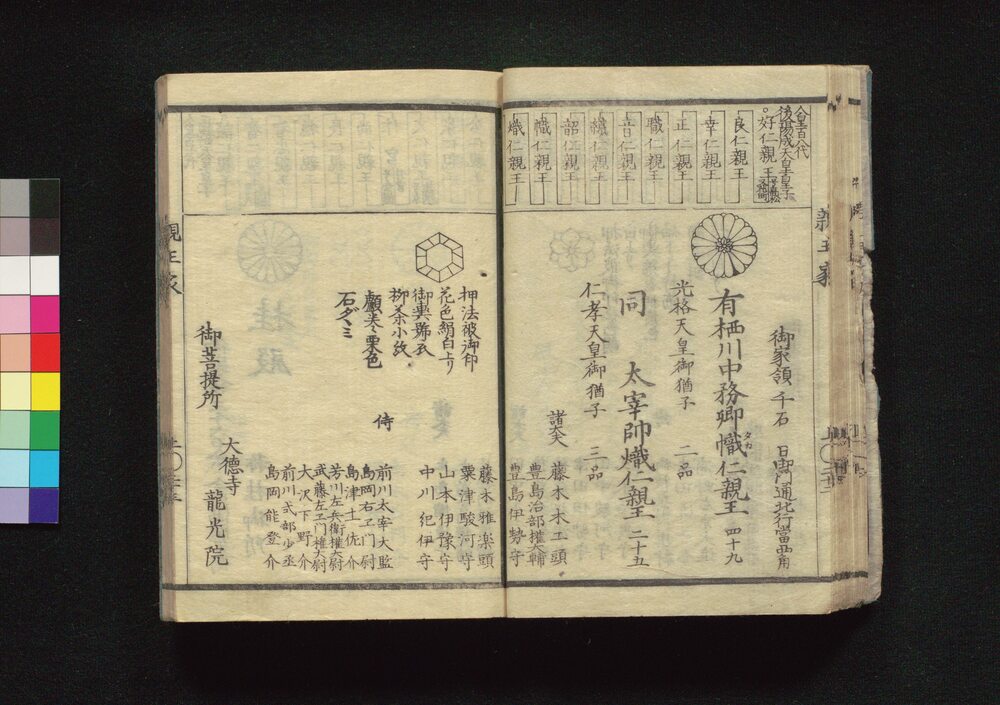 親王家
人皇百八代
後陽成天皇皇子
好仁親王
良仁親王
幸仁親王
正仁親王
職仁親王
音仁親王
織仁親王
韶仁親王
幟仁親王
熾仁親王
御家領 千石 日御門通北行當西角
有栖川中務卿幟仁親王 四十九
タカ
光格天皇御猶子 二品
同 太宰帥熾仁親王 二十五
仁孝天皇御猶子 三品
諸大夫 藤木木工頭
豊島治部権大輔
豊島伊勢守
藤木雅楽頭
粟津駿河守
山本伊豫守
中川紀伊守
押法被御印
花色絹白上リ
御輿舁衣
柳茶小紋
石ダヽミ
侍 前川太宰大監
島岡右ヱ門尉
島津土佐介
芳川左兵衛権大尉
武藤左ヱ門権大尉
大沢下野介
前川式部少丞
島岡能登介
御菩提所 大徳寺 龍光院
親王家